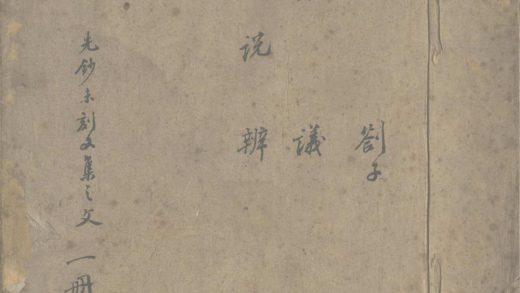 劄子
議
説辨
先鈔未刻文集之文一冊